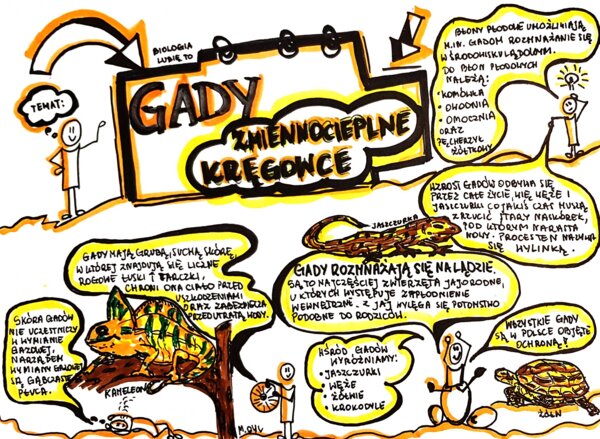 BIOLOGIA
LUBIĘ TO
TEMAT:
GADY
ZMIENNOCIEPLNE
KRĘGOWCE
BŁONY PŁODOWE UMOŻLIWIAJĄ
M.IN. GADOM ROZMNAŻANIE SIĘ
W ŚRODOWISKU LĄDOWYM.
DO BŁON PŁODOWYCH
NALEŻĄ:
• KOSMÓWKA
• OWODNIA
• OMOCZNIA
ORAZ
PĘCHERZYK
ŻÓŁTKOWY
WZROST GADÓW ODBYWA SIĘ
PRZEZ CAŁE ŻYCIE, WIĘC WĘŻE I
JASZCZURKI CO JAKIŚ CZAS MUSZĄ
ZRZUCIĆ STARY NASKÓREK,
POD KTÓRYM NARASTA
NOWY. PROCES TEN NAZYWA
SIĘ WYLINKĄ.
JASZCZURKA
GADY MAJĄ GRUBĄ, SUCHĄ SKÓRĘ,
W KTÓREJ ZNAJDUJĄ SIĘ LICZNE
ROGOWE ŁUSKI I TARCZKI.
CHRONI ONA CIAŁO PRZED
USZKODZENIAMI
ORAZ ZABEZPIECZA
PRZED UTRATĄ WODY.
GADY ROZMNAŻAJĄ SIĘ NA LĄDZIE
SĄ TO NAJCZĘŚCIEJ ZWIERZĘTA JAJORODNE,
U KTÓRYCH WYSTĘPUJE ZAPŁODNIENIE
WEWNĘTRZNE. Z JAJ WYLĘGA SIĘ POTOMSTWO
PODOBNE DO RODZICÓW.
SKÓRA GADÓW
NIE UCZESTNICZY
W WYMIANIE
GAZOWEJ.
NARZĄDEM
WYMIANY GAZOWEJ
SĄ GĄBCZASTE
PŁUCA.
KAMELEON
WŚRÓD GADÓW
WYRÓŻNIAMY:
• JASZCZURKI
• WĘŻE
• ŻÓŁWIE
• KROKODYLE
WSZYSTKIE GADY
SĄ W POLSCE OBJĘTE
OCHRONĄ!
ŻÓŁW